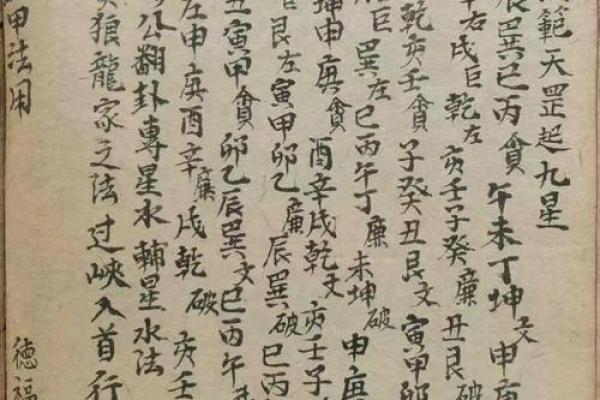 範天罡起九星
辰巽巳丙貪午未丁坤文申庚
右戌巨乾左亥壬子癸廉丑艮破
乾亥壬貪子癸丑艮文寅甲卯
巨巽左巳丙午丁廉未坤破申庚
坤申庚貪酉辛戌乾文亥壬子
巨艮左寅甲卯乙廉辰巽破巳丙
丑寅甲貪卯乙辰巽文巳丙午
左申庚酉辛廉戌乾破亥壬
公翻卦專星水輔星水法
狼龍家之法过峽入首行
甲法用
德福